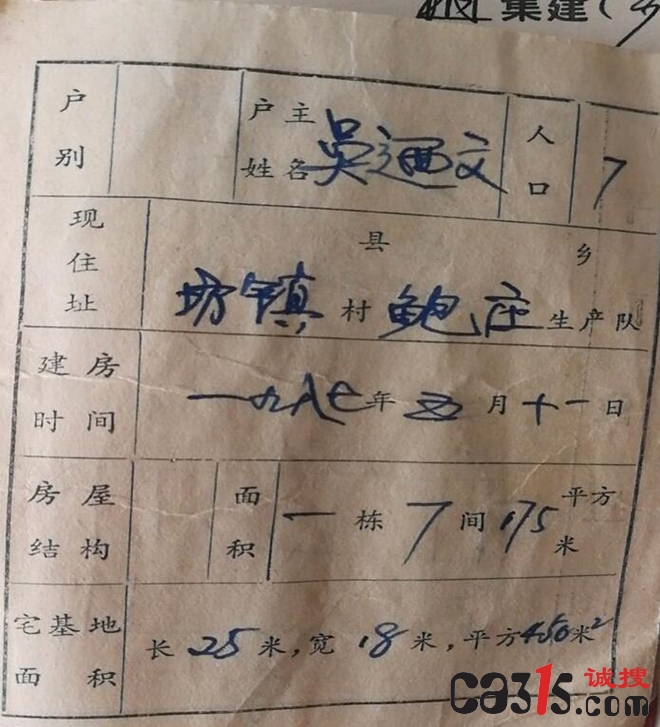 集建(乡
户别
户主姓名 吴通文
人口 7
现住址
县 乡
坊镇 村 鲍庄 生产队
建房时间 一九八七年 五月十一日
房屋结构
面积 一栋 7间 175 平方米
宅基地面积 长 25 米,宽 18 米,平方 450米²
诚搜
ca315.com